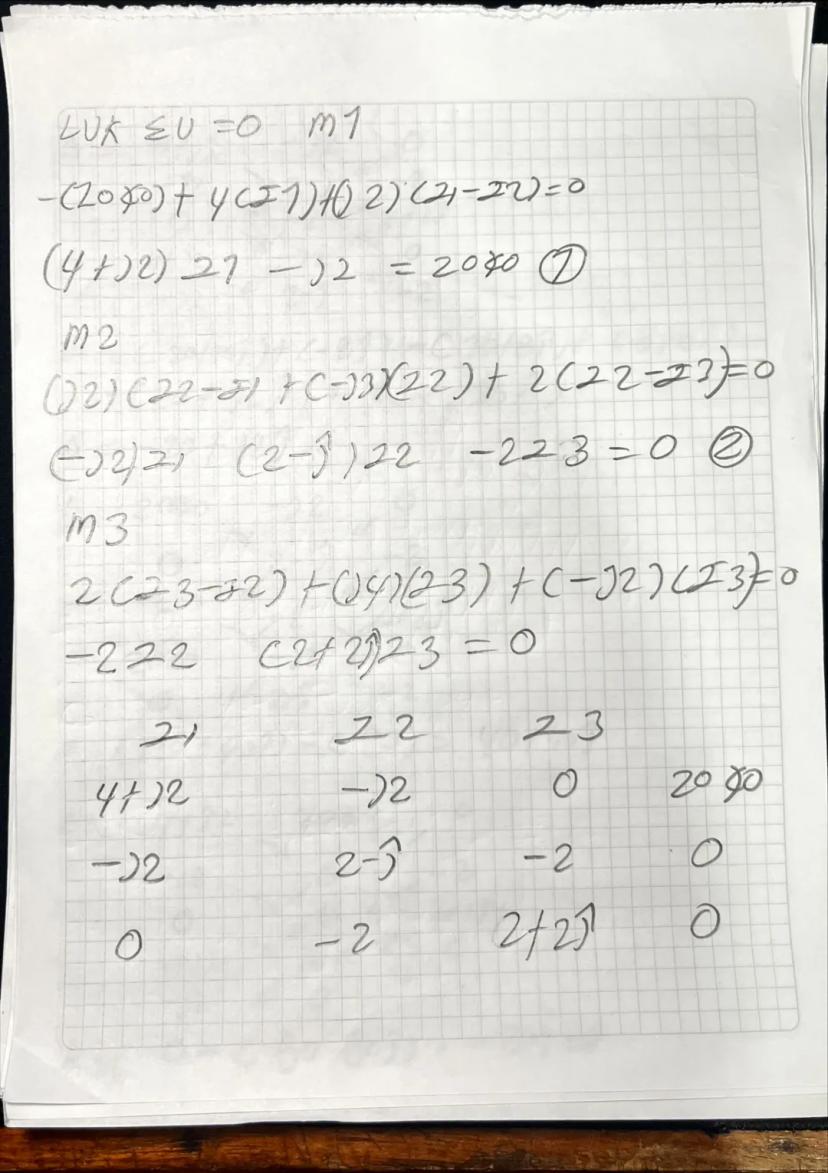 LVK ΣU = 0 m1
-(20∠0) + 4(I1) + (j2)(I1 - I2) = 0
(4+j2) I1 - j2 = 20∠0 ①
m2
(j2)(I2 - I1 + (-j3)(I2) + 2(I2 - I3) = 0
(-j2) I1 (2-j) I2 - 2I3 = 0 ②
m3
2(I3 - I2) + (j4)(I3) + (-j2)(I3) = 0
-2I2 (2+2j) I3 = 0
I1 I2 I3
4+j2 -j2 0 20∠0
-j2 2-j -2 0
0 -2 2+2j 0